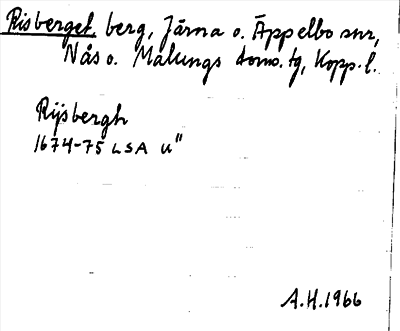 Risberget, berg, Järna o. Äppelbo snr,
Nås o. Malungs doms. tg, Kopp. l.
Rijsbergh
1674-75 LSA u"
A.H. 1966